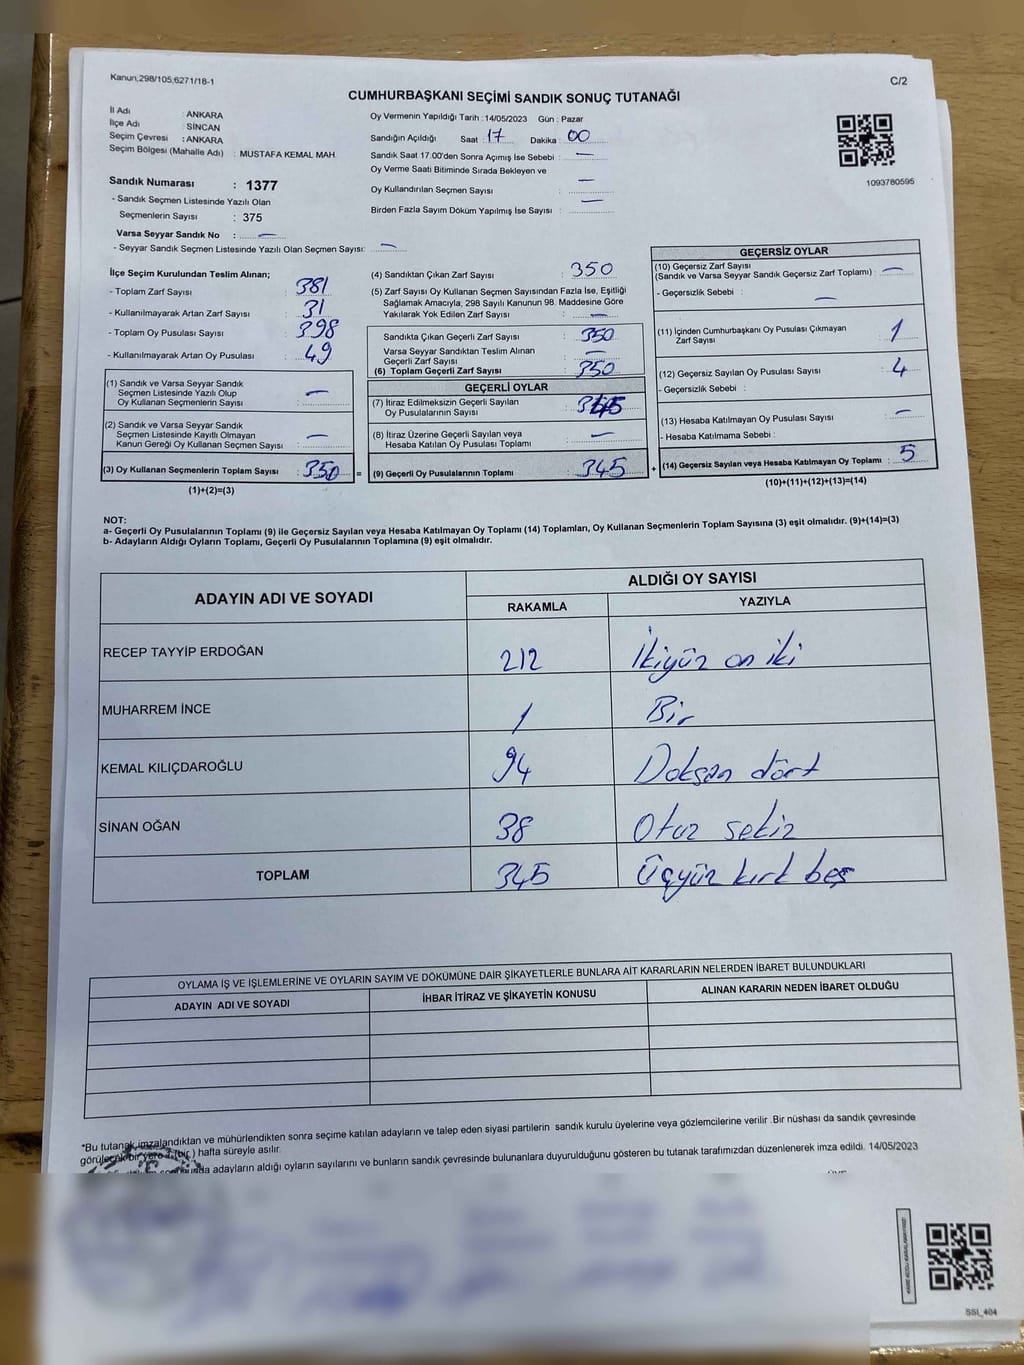 Kanun;298/105;6271/18-1
C/2
CUMHURBAŞKANI SEÇİMİ SANDIK SONUÇ TUTANAĞI
İl Adı : ANKARA
İlçe Adı : SİNCAN
Seçim Çevresi : ANKARA
Seçim Bölgesi (Mahalle Adı) : MUSTAFA KEMAL MAH.
Sandık Numarası : 1377
- Sandık Seçmen Listesinde Yazılı Olan
Seçmenlerin Sayısı : 375
Varsa Seyyar Sandık No : —
- Seyyar Sandık Seçmen Listesinde Yazılı Olan Seçmen Sayısı: —
Oy Vermenin Yapıldığı Tarih : 14/05/2023 Gün : Pazar
Sandığın Açıldığı Saat : 17 Dakika : 00
Sandık Saat 17:00'den Sonra Açımış İse Sebebi : —
Oy Verme Saati Bitiminde Sırada Bekleyen ve
Oy Kullandırılan Seçmen Sayısı : —
Birden Fazla Sayım Döküm Yapılmış İse Sayısı : —
1093780595
İlçe Seçim Kurulundan Teslim Alınan;
- Toplam Zarf Sayısı : 381
- Kullanılmayarak Artan Zarf Sayısı : 31
- Toplam Oy Pusulası Sayısı : 398
- Kullanılmayarak Artan Oy Pusulası : 49
(1) Sandık ve Varsa Seyyar Sandık
Seçmen Listesinde Yazılı Olup
Oy Kullanan Seçmenlerin Sayısı : —
(2) Sandık ve Varsa Seyyar Sandık
Seçmen Listesinde Kayıtlı Olmayan
Kanun Gereği Oy Kullanan Seçmen Sayısı : —
(3) Oy Kullanan Seçmenlerin Toplam Sayısı : 350 =
(1)+(2)=(3)
(4) Sandıktan Çıkan Zarf Sayısı : 350
(5) Zarf Sayısı Oy Kullanan Seçmen Sayısından Fazla İse, Eşitliği
Sağlamak Amacıyla, 298 Sayılı Kanunun 98. Maddesine Göre
Yakılarak Yok Edilen Zarf Sayısı : —
Sandıkta Çıkan Geçerli Zarf Sayısı : 350
Varsa Seyyar Sandıktan Teslim Alınan
Geçerli Zarf Sayısı : —
(6) Toplam Geçerli Zarf Sayısı : 350
GEÇERLİ OYLAR
(7) İtiraz Edilmeksizin Geçerli Sayılan
Oy Pusulalarının Sayısı : 345
(8) İtiraz Üzerine Geçerli Sayılan veya
Hesaba Katılan Oy Pusulası Toplamı : —
(9) Geçerli Oy Pusulalarının Toplamı : 345 +
GEÇERSİZ OYLAR
(10) Geçersiz Zarf Sayısı
(Sandık ve Varsa Seyyar Sandık Geçersiz Zarf Toplamı) : —
- Geçersizlik Sebebi : —
(11) İçinden Cumhurbaşkanı Oy Pusulası Çıkmayan
Zarf Sayısı : 1
(12) Geçersiz Sayılan Oy Pusulası Sayısı : 4
- Geçersizlik Sebebi :
(13) Hesaba Katılmayan Oy Pusulası Sayısı : —
- Hesaba Katılmama Sebebi :
(14) Geçersiz Sayılan veya Hesaba Katılmayan Oy Toplamı : 5
(10)+(11)+(12)+(13)=(14)
NOT:
a- Geçerli Oy Pusulalarının Toplamı (9) ile Geçersiz Sayılan veya Hesaba Katılmayan Oy Toplamı (14) Toplamları, Oy Kullanan Seçmenlerin Toplam Sayısına (3) eşit olmalıdır. (9)+(14)=(3)
b- Adayların Aldığı Oyların Toplamı, Geçerli Oy Pusulalarının Toplamına (9) eşit olmalıdır.
ADAYIN ADI VE SOYADI ALDIĞI OY SAYISI
RAKAMLA YAZIYLA
RECEP TAYYİP ERDOĞAN 212 İkiyüz on iki
MUHARREM İNCE 1 Bir
KEMAL KILIÇDAROĞLU 94 Doksan dört
SİNAN OĞAN 38 Otuz sekiz
TOPLAM 345 Üçyüz kırk beş
OYLAMA İŞ VE İŞLEMLERİNE VE OYLARIN SAYIM VE DÖKÜMÜNE DAİR ŞİKAYETLERLE BUNLARA AİT KARARLARIN NELERDEN İBARET BULUNDUKLARI
ADAYIN ADI VE SOYADI İHBAR İTİRAZ VE ŞİKAYETİN KONUSU ALINAN KARARIN NEDEN İBARET OLDUĞU
*Bu tutanak imzalandıktan ve mühürlendikten sonra seçime katılan adayların ve talep eden siyasi partilerin sandık kurulu üyelerine veya gözlemcilerine verilir .Bir nüshası da sandık çevresinde
görülecek bir yere 1 (bir) hafta süreyle asılır.
adayların aldığı oyların sayılarını ve bunların sandık çevresinde bulunanlara duyurulduğunu gösteren bu tutanak tarafımızdan düzenlenerek imza edildi. 14/05/2023
SSI_404